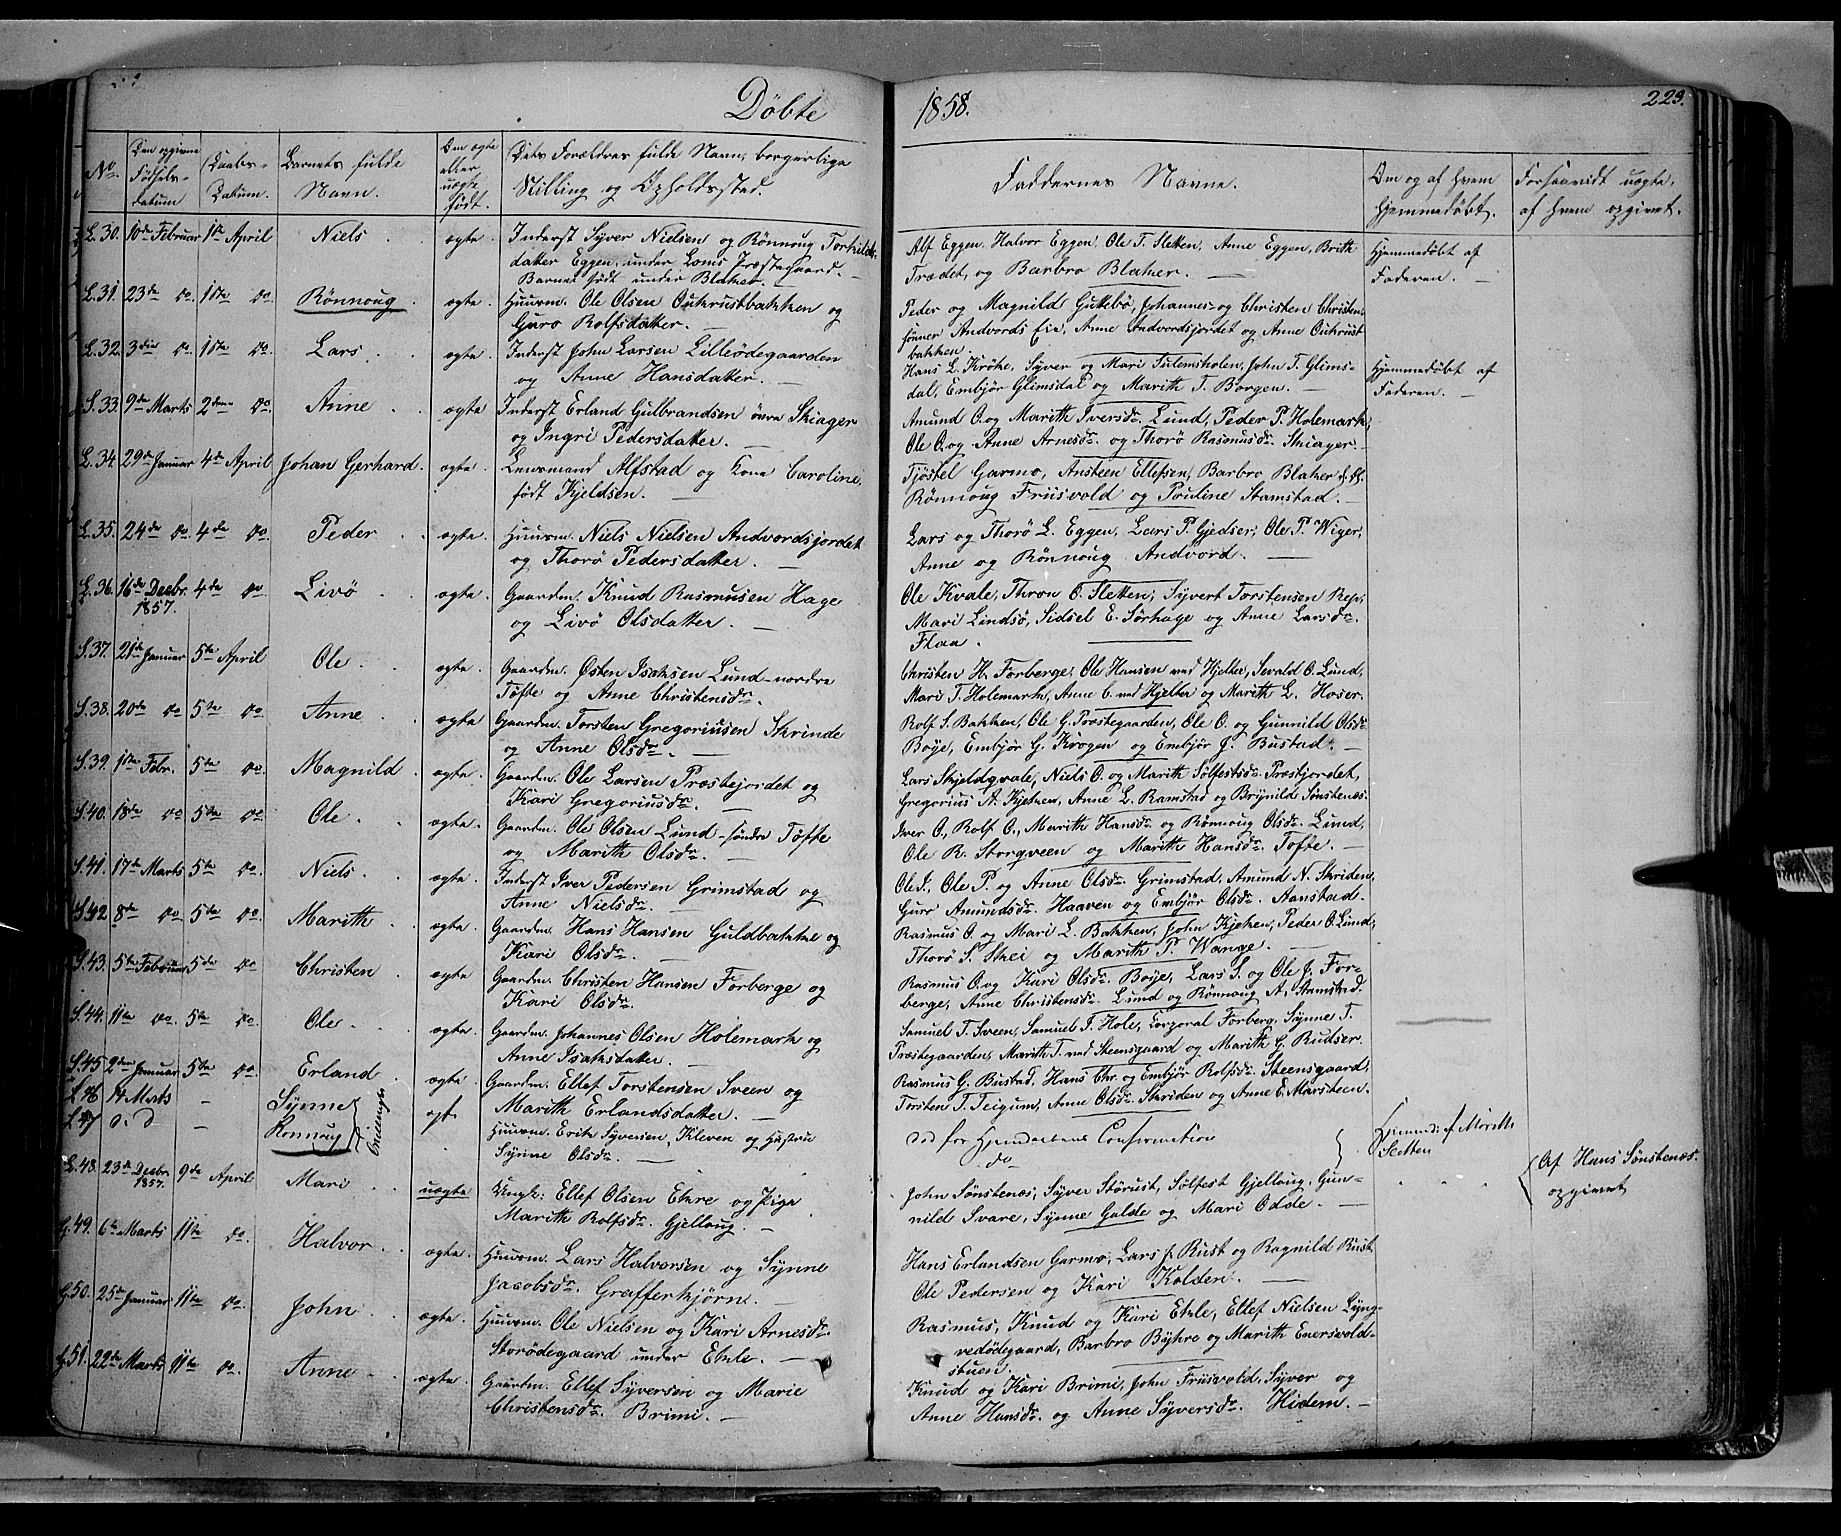 Döbte 1858. 229.
No. | Den opgivne Födsels-datum | Daabs-Datum. | Barnets fulde Navn. | Om ægte eller uægte født. | Dets Forældres fulde Navn, borgerlige Stilling og Opholdssted. | Faddernes Navne. | Om og af hvem hjemmedøbt. | Forsaavidt uægte, af hvem opgivet.
L.30. 10de Februar 1ste April Niels ægte. Inderst Syver Nielsen og Rönnoug Torkilds-
datter Eggen under Loms Præstegaard.
Barnet født under Blakar.
Alf Eggen, Halvor Eggen, Ole T. Sletten, Anne Eggen, Brith
Trædet, og Barbro Blaker.
Hjemmedøbt af
Faderen.
L.31. 23de do. 1ste do. Rönnoug. ægte. Huusm. Ole Olsen Oukrustbakken og
Guro Rolfsdatter.
Peder og Magnild Guttebö, Johannes og Christen Christen-
sönner Andvords Eie, Anne Andvordsjordet og Anne Oukrust-
bakken.
L.32. 3die do. 1ste do. Lars. ægte. Inderst John Larsen Lilleödegaarden
og Anne Hansdatter.
Hans L. Kröke, Syver og Mari Tulemsholen, John T. Glims-
dal, Embjör Glimsdal og Marith T. Borgen.
Hjemmedöbt af
Faderen.
S.33 9de Marts 2den do. Anne ægte. Inderst Erland Gulbrandsen övre Skiager
og Ingri Pedersdatter.
Amund O. og Marith Iversdr. Lund, Peder P. Holemark,
Ole O. og Anne Arnesdr. og Thorö Rasmusdr. Skiager.
L.34. 29de Januar 4de April Johan Gerhard. ægte. Lensmand Alfstad og Kone Caroline
født Kjeldsen.
Tjöstel Garmo, Ansteen Ellefsen, Barbro Blaker
Rönnoug Friisvold og Pridine Stamstad.
L.35. 24de do. 4de do. Peder ægte. Huusm. Niels Nielsen Andvordsjordet
og Thorö Pedersdatter.
Lars og Thorö L. Eggen, Lars P. Gjedser, Ole P. Wiger,
Anne og Rönnoug Andvord.
L.36. 16de Decbr. 1857. 4de do. Livö ægte. Gaardm. Knud Rasmusen Hage
og Livö Olsdatter.
Ole Kvale, Thron O. Sletten, Syvert Torstensen Rep,
Mari Lindsö, Sidsel E. Sörhage og Anne Larsdr.
Flaa.
S.37. 21de Januar 5te April Ole. ægte. Gaardm. Østen Isaksen Lund-nordre
Tofte og Anne Christensdr.
Christen H. Forberge, Ole Hansen ved Hjelter, Sevald O. Lund,
Mari T. Holemark, Anne C. ved Hjelter og Marith L. Hoser.
S.38. 20de do 5te do. Anne. ægte. Gaardm. Torsten Gregoriusen Skrinde
og Anne Olsdr.
Rolf S. Bakken, Ole G. Præstegaarden, Ole O. og Gunnild Olsdr.
Boye, Embjör G. Krogen og Embjör J. Bustad.
S.39. 1ste Febr. 5te do. Magnild. ægte. Gaardm. Ole Larsen Præstejordet og
Kari Gregoriusdr.
Lars Skjeldqvale, Niels O. og Marith Sölfestsdr. Præstjordet,
Gregorius A. Kjekken, Anne L. Ramstad og Brynild Sönstenæs.
S.40. 18de do 5te do. Ole. ægte. Gaardm. Ole Olsen Lund-söndre Tofte
og Marith Olsdr.
Iver O., Rolf O., Marith Hansdr. og Rönnoug Olsdr. Lund,
Ole R. Storgveen og Marith Hansdr. Tofte.
S.41. 17de Marts 5te do. Niels. ægte. Inderst Iver Pedersen Grimstad og
Anne Nielsdr.
Ole I., Ole P. og Anne Olsdr. Grimstad, Amund N. Skriden,
Guro Amundsdr. Haaven og Embjör Olsdr. Aanstad.
S.42 8de do 5te do. Marith ægte. Gaardm. Hans Hansen Guldbakke og
Kari Olsdr.
Rasmus O. og Mari L. Bakken, John Kjekken, Peder O. Lund,
Thorö S. Skei og Marith P. Wange.
S.43. 5te Februar 5te do Christen ægte. Gaardm. Christen Hansen Forberge og
Kari Olsdr.
Rasmus O. og Kari Olsdr. Boye, Lars S. og Ole J. For-
berge, Anne Christensdr. Lund og Rönnoug A. Aamstad.
S.44. 11te do. 5te do. Ole. ægte. Gaardm. Johannes Olsen Holemark og
Anne Isaksdatter.
Samuel T. Sveen, Samuel J. Hole, Corporal Forberg, Synne T.
Præstegaarden, Marith T. ved Steensgaard og Marith G. Rudser.
S.45 2den Januar 5te do. Erland. ægte. Gaardm. Ellef Torstensen Sveen og
Marith Erlandsdatter.
Rasmus G. Bustad, Hans Chr. og Embjör Rolfsdr. Steensgaard,
Torsten T. Teigum, Anne Olsdr. Skriden og Anne E. Marsteen.
L.46 14 Marts - Synne
L.47 d. d - Rönnoug } Tvillinger ægt. Huusm. Erik Syversen, Kleven og Hustru
Synne Olsdr.
död før Hjemmedaabens Confirmation
do
Hjemmed: af Marith
Sletten
L.48. 23de Decbr. 1857. 9de April Mari uægte. Ungk: Ellef Olsen Ekre og Pige
Marith Rolfsdr. Gjelloug.
John Sönstenæs, Syver Störust, Sölfest Gjelloug, Gun-
nild Svare, Synne Galde og Mari Odde.
Af Hans Sönstenæs.
opgivet
G.49. 6te Marts 11te do. Halvor ægte. Huusm. Lars Halvorsen og Synne
Jacobsdr. Grafferkjörn.
Hans Erlandsen Garmo, Lars J. Rust og Ragnild Rust
Ole Pedersen og Kari Kolden.
G.50. 25de Januar 11te do. John ægte. Huusm. Ole Nielsen og Kari Arnesdr.
Storödegaard under Ekle.
Rasmus, Knud og Kari Ekle, Ellef Nielsen Lyng-
vedödegaard, Barbro Byhre og Marith Enersvold-
stuen.
G.51. 22de Marts 11te do. Anne ægte. Gaardm. Ellef Syversen og Marie
Christensdr. Brimi.
Knud og Kari Brimi, John Friisvold, Syver og
Anne Hansdr. og Anne Syversdr. Hidem.